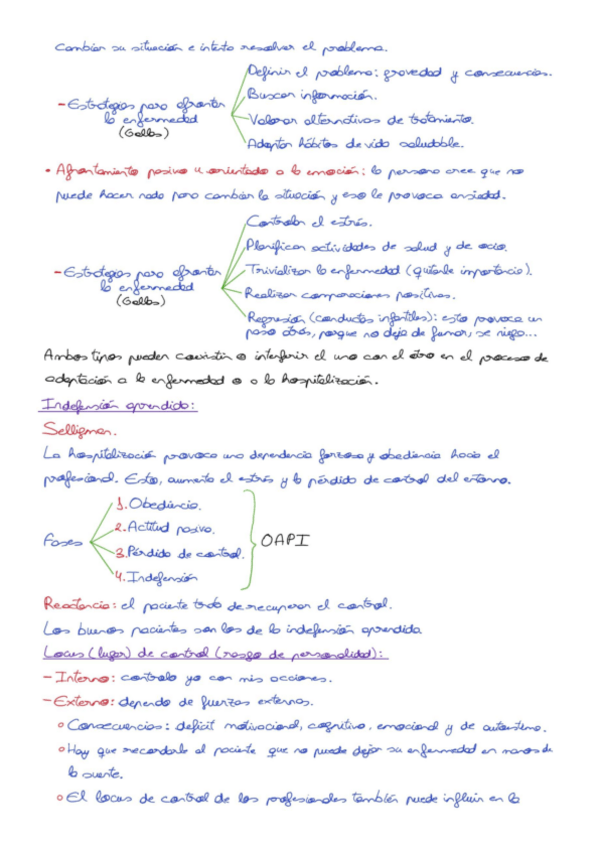 Cambiar su situación e intenta resolver el problema.
Definir el problema: gravedad y consecuencias.
Buscar información.
- Estrategias para afrontar la enfermedad (Gallas)
Valorar alternativas de tratamiento.
Adoptar hábitos de vida saludable.
• Afrontamiento pasivo u orientado a la emoción: la persona cree que no
puede hacer nada para cambiar la situación y eso le provoca ansiedad.
Controlar el estrés.
Planificar actividades de salud y de ocio.
- Estrategias para afrontar la enfermedad (Gallas)
Trivializar la enfermedad (quitarle importancia).
Realizar comparaciones positivas.
Regresión (conductas infantiles): esto provoca un
paso atrás, porque no deja de fumar, se niega...
Ambos tipos pueden coexistir o interferir el uno con el otro en el proceso de
adaptación a la enfermedad o a la hospitalización.
Indefensión aprendida:
Selligman.
La hospitalización provoca una dependencia forzosa y obediencia hacia el
profesional. Esto, aumenta el estrés y la pérdida de control del entorno.
Fases
1. Obediencia.
2. Actitud pasiva.
3. Pérdida de control.
4. Indefensión
OAPI
Reactancia: el paciente trata de recuperar el control.
Los buenos pacientes son los de la indefensión aprendida.
Locus (lugar) de control (rasgo de personalidad):
- Interno: controlo yo con mis acciones.
- Externo: depende de fuerzas externas.
Consecuencias: déficit motivacional, cognitivo, emocional y de autoestima.
Hay que recordarle al paciente que no puede dejar su enfermedad en manos de
la suerte.
El locus de control de los profesionales también puede influir en la